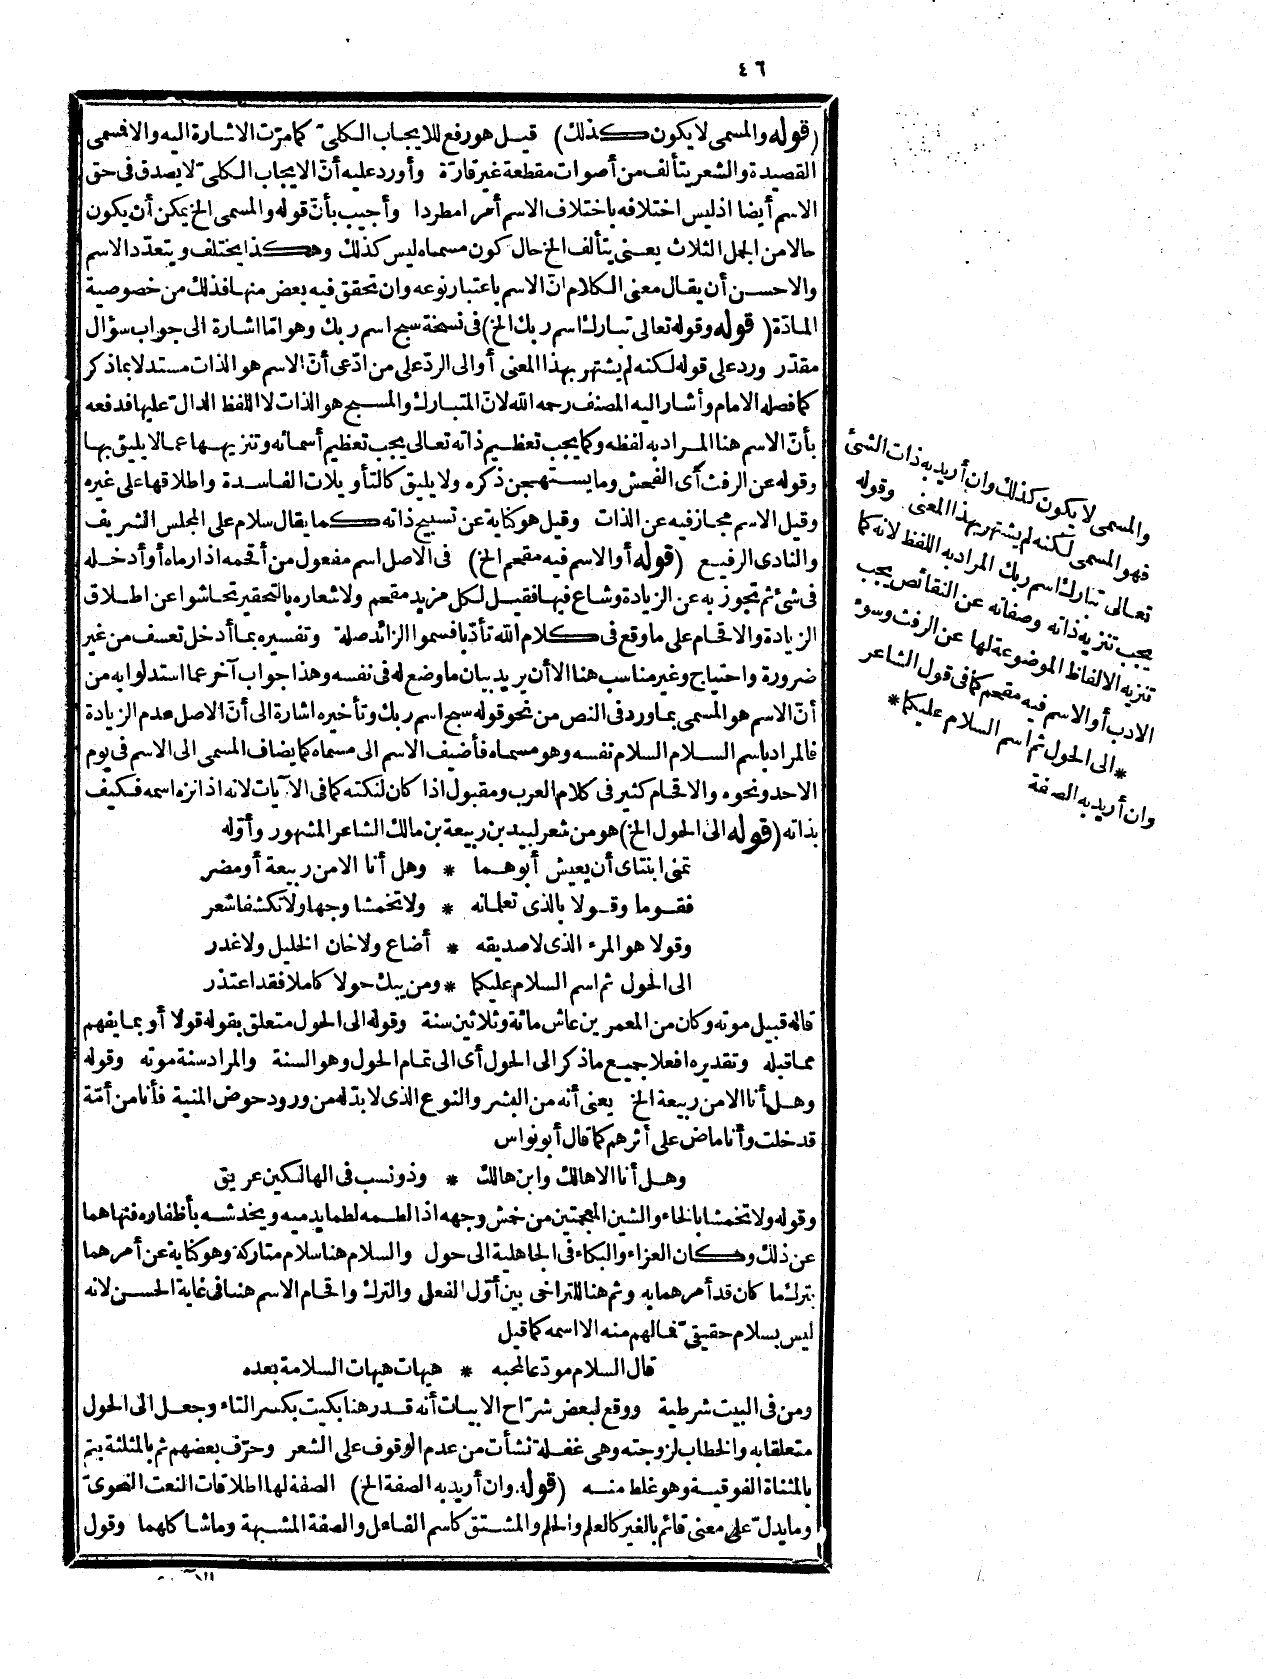 ٤٦
(قوله والمسمى لا يكون كذلك) قيل هو رفع للايجاب الكلىّ كما مرّت الاشارة اليه والا فسمى
القصيدة والشعر يتألف من أصوات مقطعة غير قارّة وأورد عليه أنّ الايجاب الكلىّ لا يصدق فى حق
الاسم أيضا اذ ليس اختلافه باختلاف الاسم أمرا مطردا وأجيب بأنّ قوله والمسمى الخ يمكن أن يكون
حالا من الجمل الثلاث يعنى يتألف الخ حال كون مسماه ليس كذلك وهكذا يختلف ويتعدّد الاسم
والاحسن أن يقال معنى الكلام انّ الاسم باعتبار نوعه وان تحقق فيه بعض منها فذلك من خصوصية
المادّة (قوله وقوله تعالى تبارك اسم ربك الخ) فى نسخة سبح اسم ربك وهو امّا اشارة الى جواب سؤال
مقدّر ورد على قوله لكنه لم يشتهر بهذا المعنى أو الى الردّ على من ادّعى أنّ الاسم هو الذات مستدلا بما ذكر
كما فصله الامام وأشار اليه المصنف رحمه الله لانّ المتبارك والمسبح هو الذات لا اللفظ الدالّ عليها فدفعه
بأنّ الاسم هنا المراد به لفظه وكما يجب تعظيم ذاته تعالى يجب تعظيم أسمائه وتنزيهها عما لا يليق بها
وقوله عن الرفث أى الفحش وما يستهجن ذكره ولا يليق كالتأويلات الفاسدة واطلاقها على غيره
وقيل الاسم مجاز فيه عن الذات وقيل هو كناية عن تسبيح ذاته كما يقال سلام على المجلس الشريف
والنادى الرفيع (قوله أو الاسم فيه مقحم الخ) فى الاصل اسم مفعول من أقحمه اذا رماه أو أدخله
فى شئ ثم تجوز به عن الزيادة وشاع فيها فقيل لكل مزيد مقحم ولاشعاره بالتحقير تحاشوا عن اطلاق
الزيادة والاقحام على ما وقع فى كلام الله تأدّبا فسموا الزائد صلة وتفسيره بما أدخل تعسف من غير
ضرورة واحتياج وغير مناسب هنا الا أن يريد بيان ما وضع له فى نفسه وهذا جواب آخر عما استدلوا به من
أنّ الاسم هو المسمى بما ورد فى النص من نحو قوله سبح اسم ربك وتأخيره اشارة الى أنّ الاصل عدم الزيادة
فالمراد باسم السلام السلام نفسه وهو مسماه فأضيف الاسم الى مسماه كما يضاف المسمى الى الاسم فى يوم
الاحد ونحوه والاقحام كثير فى كلام العرب ومقبول اذا كان لنكته كما فى الآيات لانه اذا نزه اسمه فكيف
بذاته (قوله الى الحول الخ) هو من شعر لبيد بن ربيعة بن مالك الشاعر المشهور وأوّله
تمنى ابنتاى أن يعيش أبوهما * وهل أنا الا من ربيعة أو مضر
فقوما وقولا بالذى تعلمانه * ولا تخمشا وجها ولا تكشفا شعر
وقولا هو المرء الذى لا صديقه * أضاع ولا خان الخليل ولا غدر
الى الحول ثم اسم السلام عليكما * ومن يبك حولا كاملا فقد اعتذر
قاله قبيل موته وكان من المعمرين عاش مائة وثلاثين سنة وقوله الى الحول متعلق بقوله قولا أو بما يفهم
مما قبله وتقديره افعلا جميع ما ذكر الى الحول أى الى تمام الحول وهو السنة والمراد سنة موته وقوله
وهل أنا الا من ربيعة الخ يعنى أنه من البشر والنوع الذى لا بدّ له من ورود حوض المنية فأنا من أمّة
قد خلت وأنا ماض على أثرهم كما قال أبو نواس
وهل أنا الا هالك وابن هالك * وذو نسب فى الهالكين عريق
وقوله ولا تخمشا بالخاء والشين المعجمتين من خمش وجهه اذا لطمه لطما يدميه ويخدشه بأظفاره فنهاهما
عن ذلك وكان العزاء والبكاء فى الجاهلية الى حول والسلام هنا سلام متاركة وهو كناية عن أمرهما
بترك ما كان قد أمرهما به وثم هنا للتراخى بين أوّل الفعل والترك واقحام الاسم هنا فى غاية الحسن لانه
ليس بسلام حقيقىّ فالهم منه الا اسمه كما قيل
قال السلام مودّعا لمحبه * هيهات هيهات السلامة بعده
ومن فى البيت شرطية ووقع لبعض شرّاح الابيات أنه قدر هنا بكيت بكسر التاء وجعل الى الحول
متعلقا به والخطاب لزوجته وهى غفلة نشأت من عدم الوقوف على الشعر وحرّف بعضهم ثم بالمثلثة بتم
بالمثناة الفوقية وهو غلط منه (قوله وان أريد به الصفة الخ) الصفة لها اطلاقات النعت النحوىّ
وما يدلّ على معنى قائم بالغير كالعلم والحلم والمشتق كاسم الفاعل والصفة المشبهة وما شاكلهما وقول
والمسمى لا يكون كذلك وان أريد به ذات الشئ
فهو المسمى لكنه لم يشتهر بهذا المعنى وقوله
تعالى تبارك اسم ربك المراد به اللفظ لانه كما
يجب تنزيه ذاته وصفاته عن النقائص يجب
تنزيه الالفاظ الموضوعة لها عن الرفث وسوء
الادب أو الاسم فيه مقحم كما فى قول الشاعر
*الى الحول ثم اسم السلام عليكما*
وان أريد به الصفة